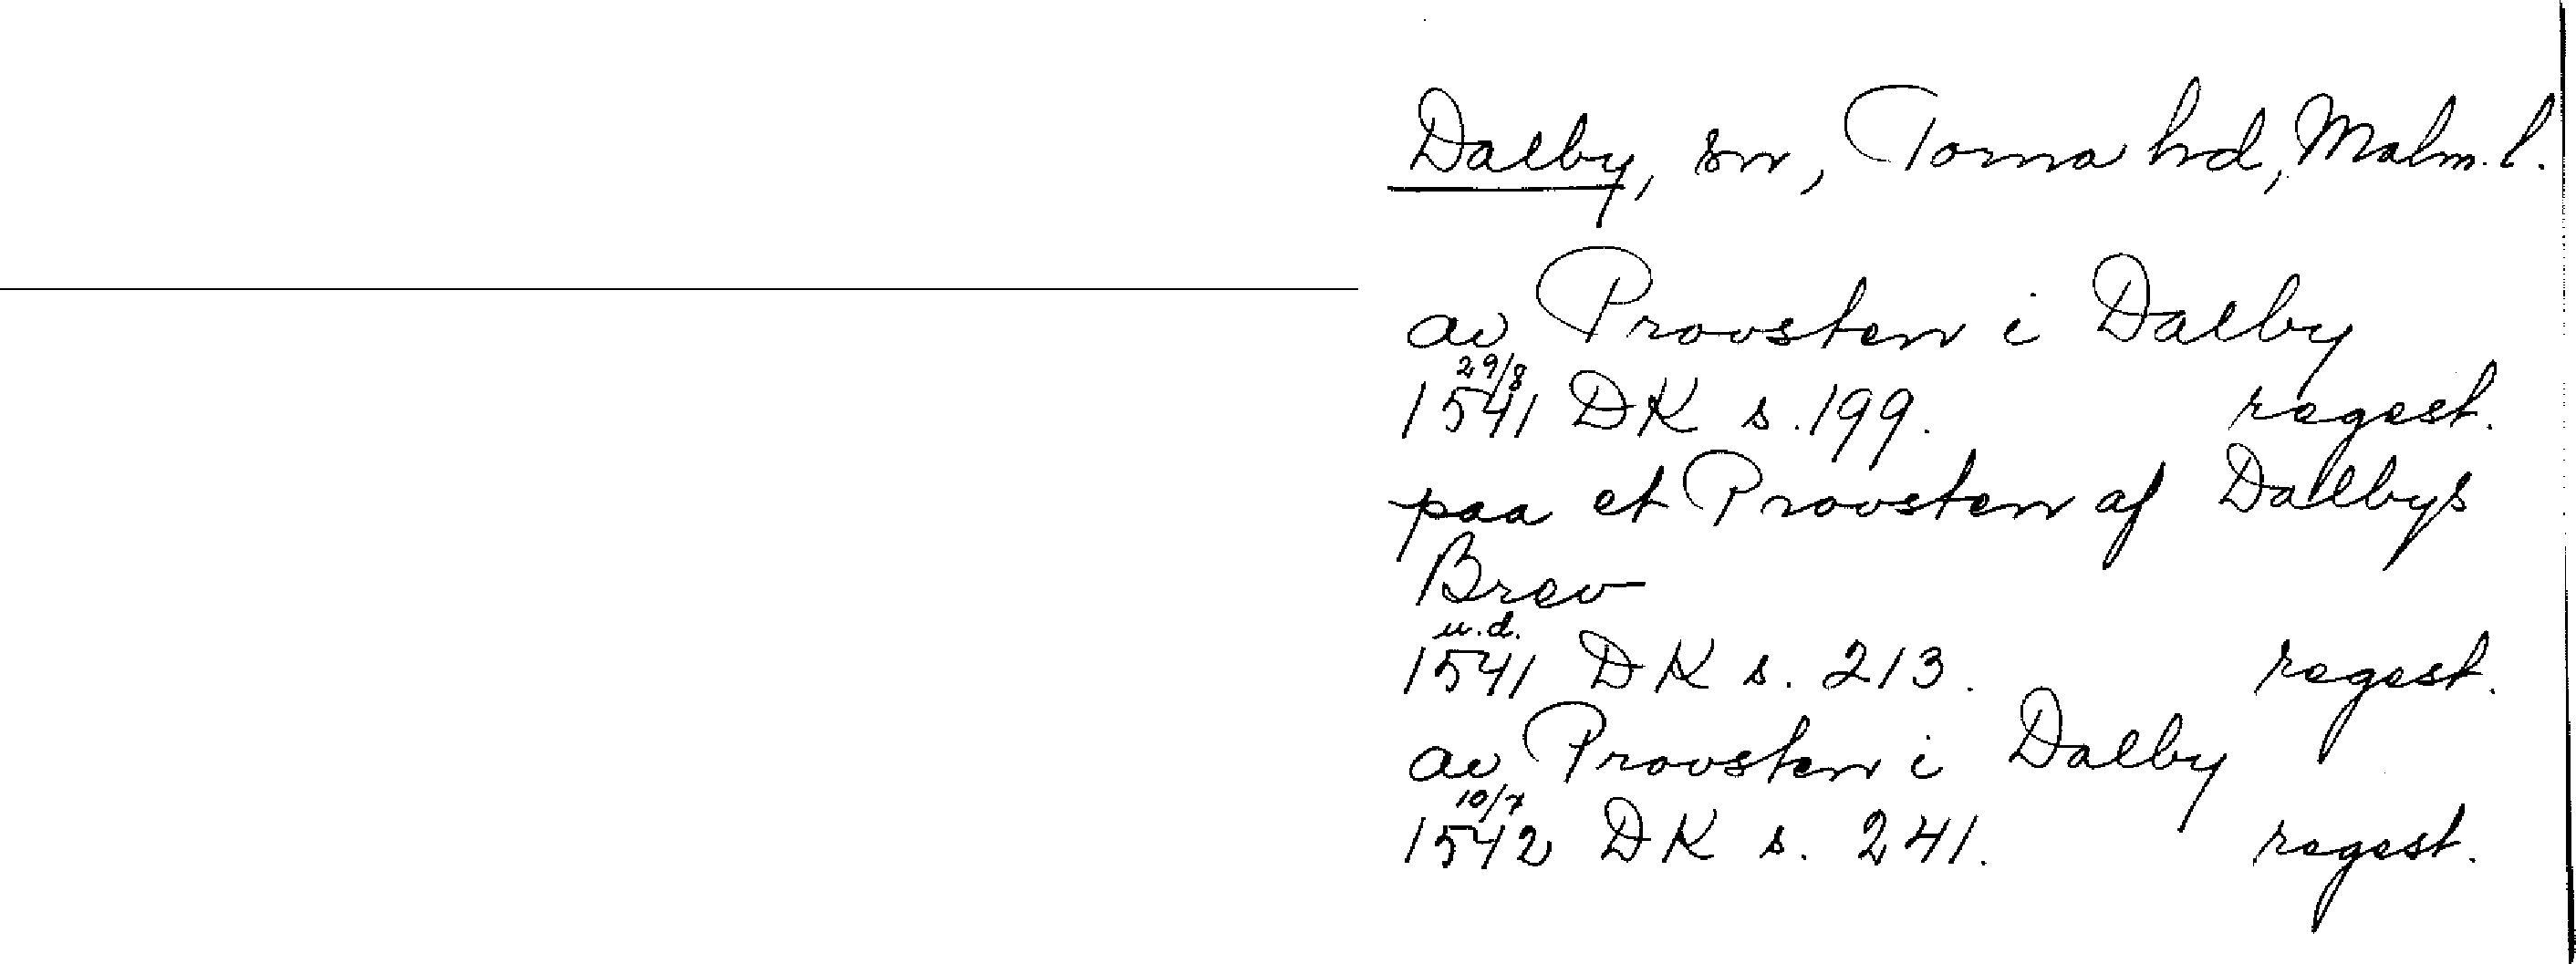 Dalby, sn, Torna hd, Malm. l.
av Provsten i Dalby
29/8
1541 DK s. 199. regest.
paa et Provsten af Dalbys
Brev
u.d.
1541 DK s. 213. regest.
av Provsten i Dalby
10/7
1542 DK s. 241. regest.